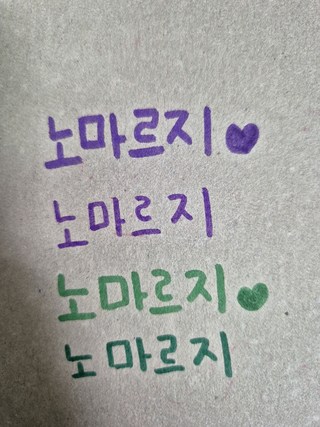 노마르지♥
노마르지
노마르지♥
노마르지